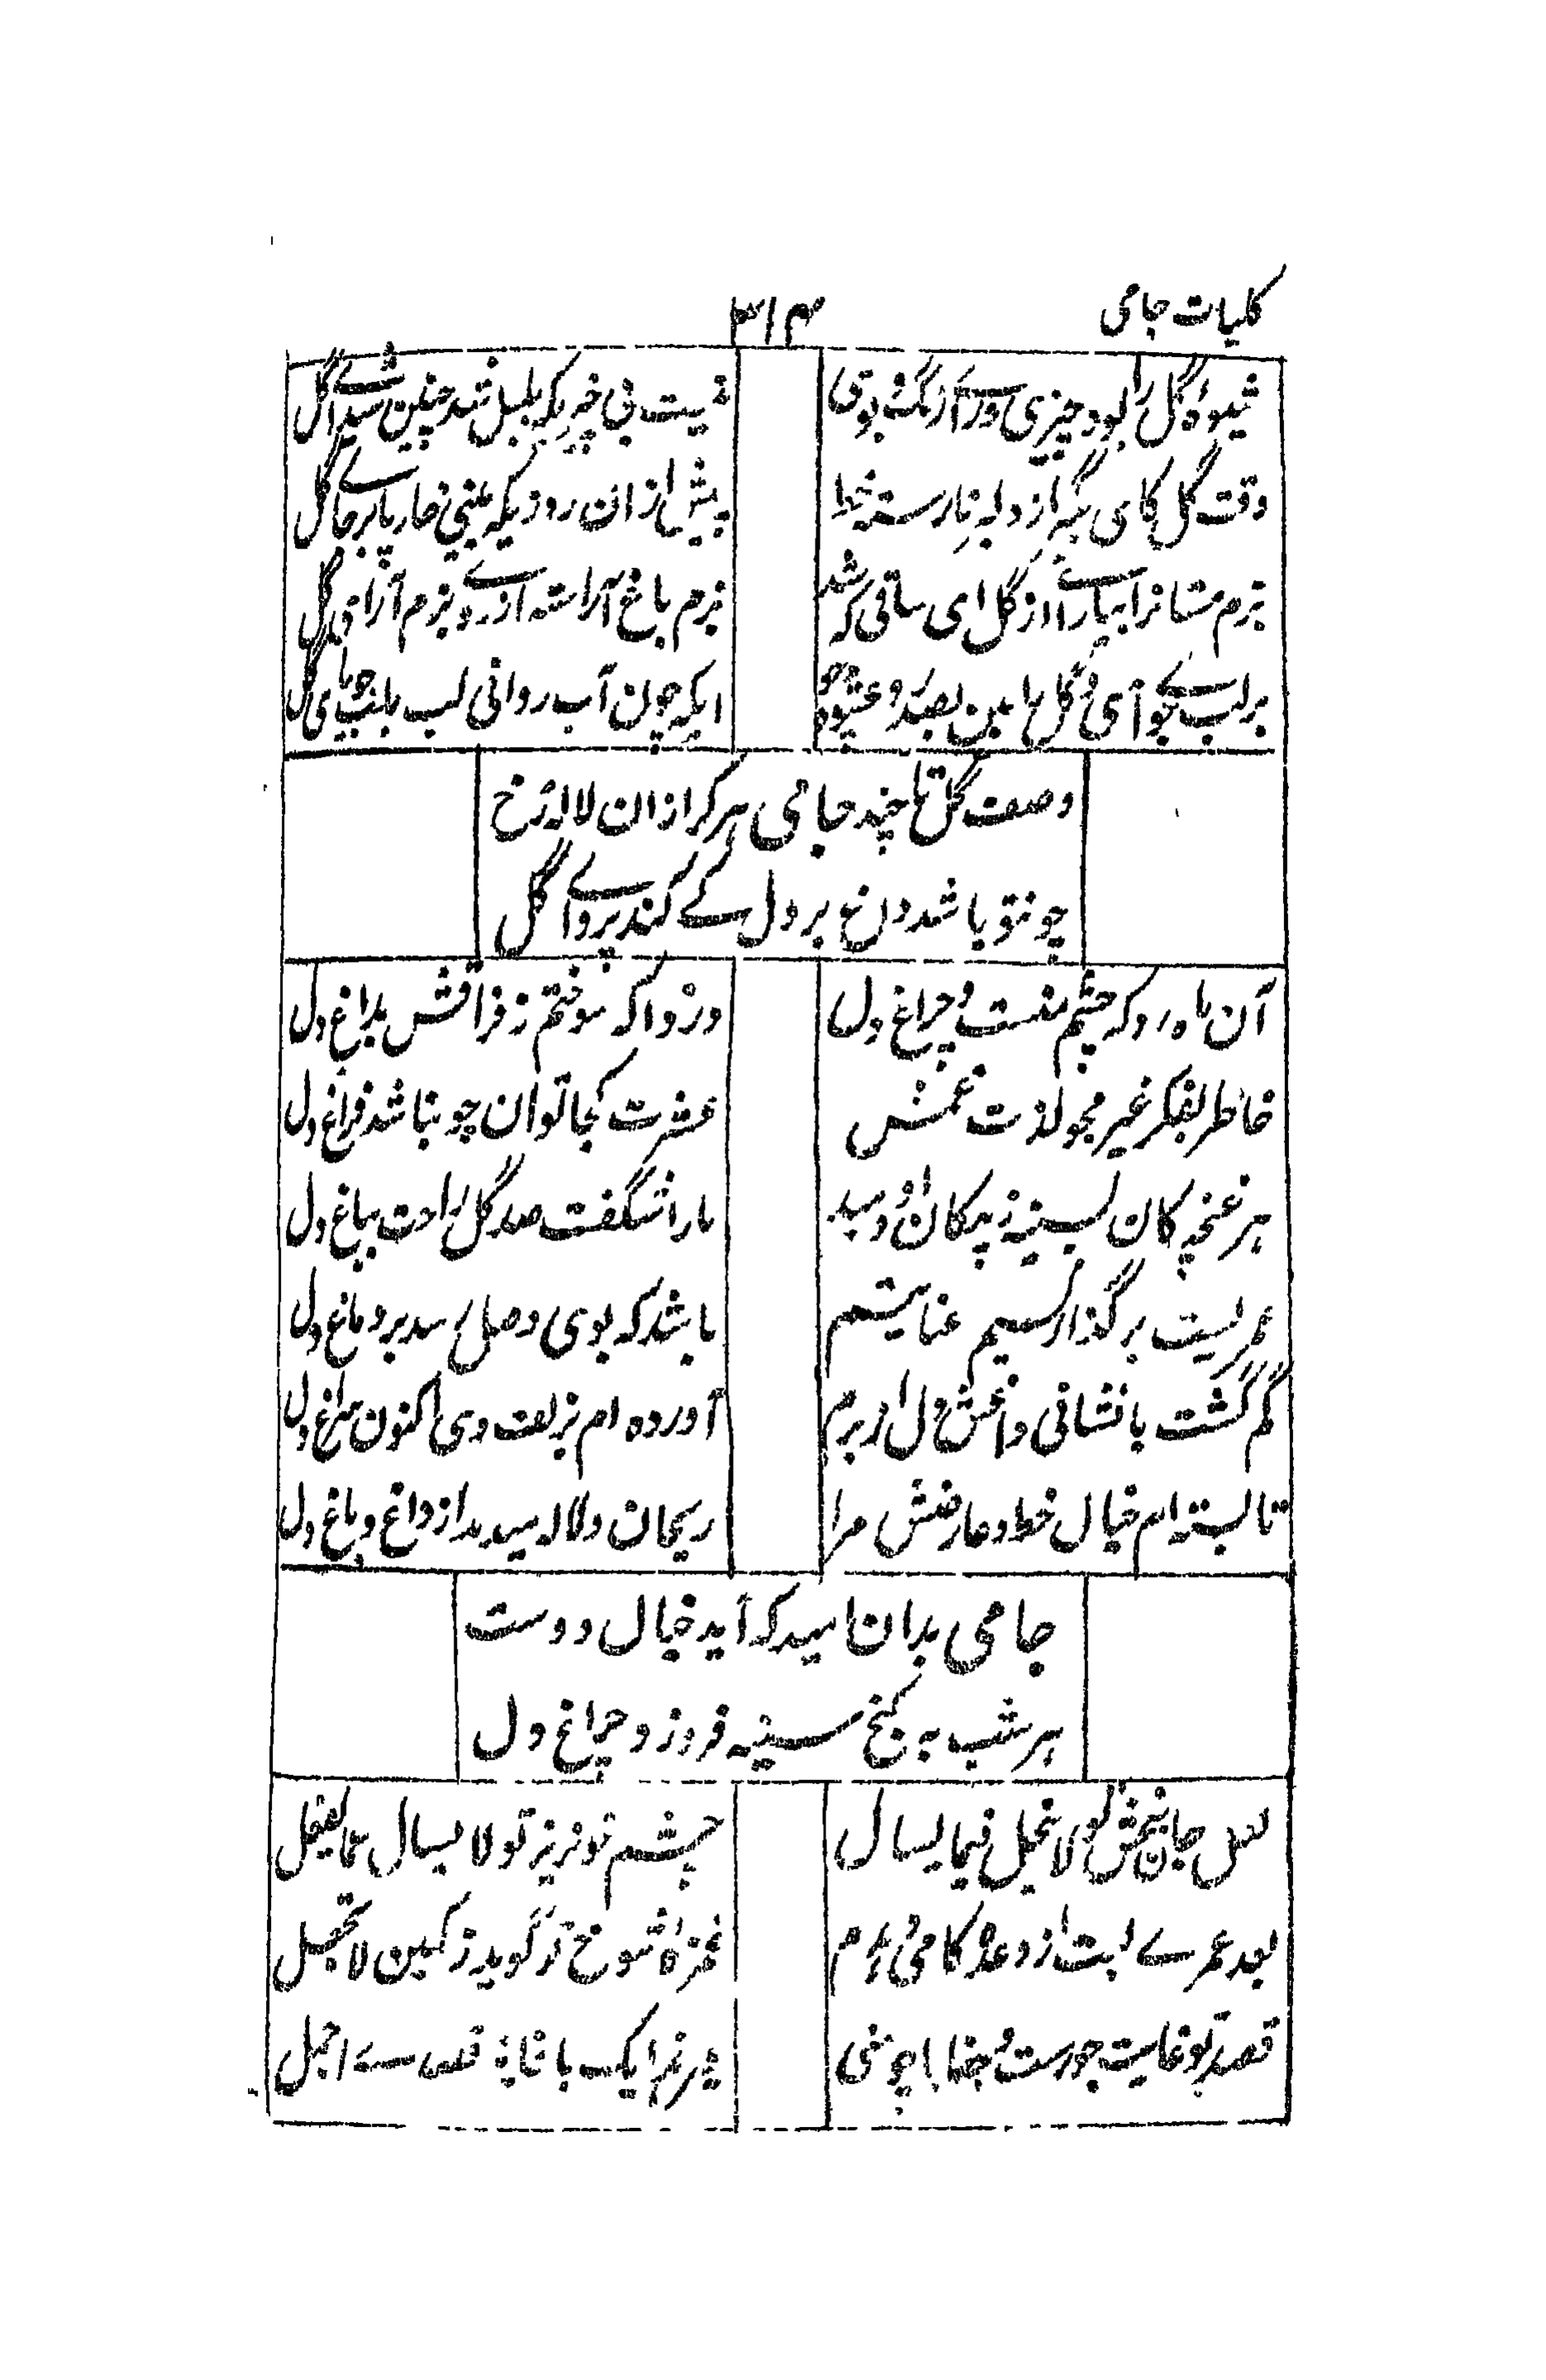 کلیات جامی
۳۱۴
شیوهٔ گل را بود چیزی ورای رنگ و بوی
نیست بی چیزیکه بلبل شد چنین شیدای گل
وقت گل کامی بگیر از دلبر نارسته خط
پیش ازان روزیکه بینی خار پا بر جای گل
بزم مستانرا بیارا از گل ای ساقی که شد
بزم باغ آراسته از روی بزم آرای گل
بر لب جو آی و گل را بین بصد عشوه
ایکه چون آب روانی لب بلب جویای گل
وصف گل تا چند جامی هر کرا زان لاله رخ
چونتو باشد داغ بر دل کے کند پروای گل
آن ماه رو که چشم منست و چراغ دل
دردا که سوختم ز فراقش بداغ دل
خاطر بفکر غیر مجو لذت غمش
عشرت کجا توان چو نباشد فراغ دل
هر غنچه کان بسینه ز پیکان او دمید
ما را شگفت صد گل راحت بباغ دل
عمریست بر گذار نسیم عنایتیم
باشد که بوی وصل رسد بر دماغ دل
گم گشت با نشانی داغش دل از برم
آورده ام بزلف وی اکنون سراغ دل
تا بسته ام خیال خط و عارضش مرا
ریحان و لاله میدمد از داغ و باغ دل
جامی بدان امید که آید خیال دوست
هر شب به کنج سینه فروزد چراغ دل
لعل جان بخش تو لا یبخل فیما یسال
چشم خونریز تو لا یسال عما یفعل
بعد عمرے لبت از وعدهٔ کامی دهم
غمزهٔ شوخ تو گوید ز کمین لا تعجل
قصد تو غایت جورست و جفا با چو منی